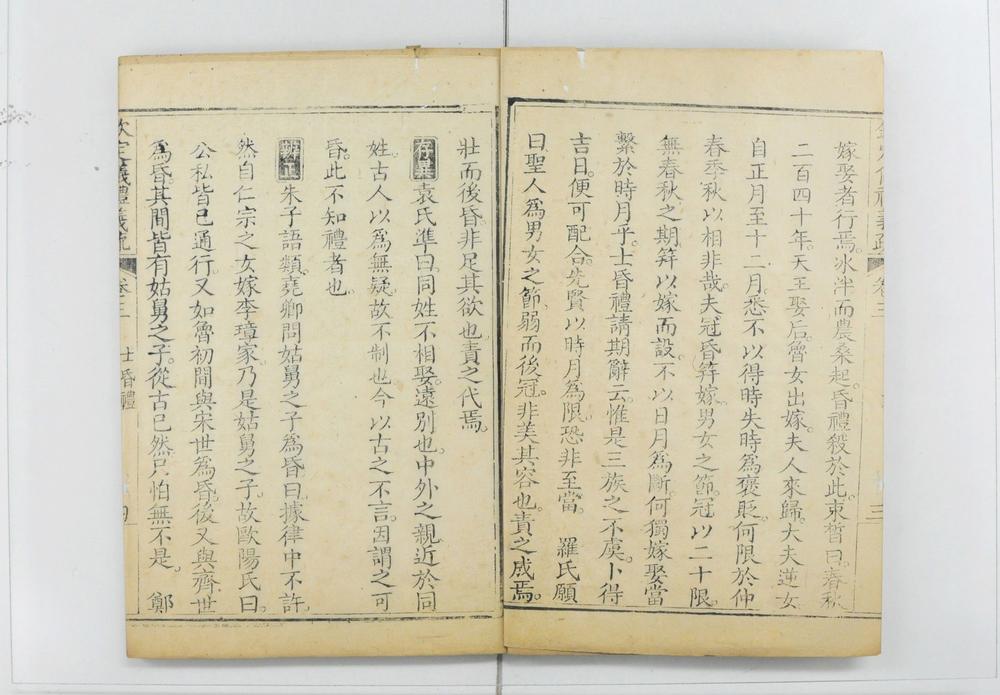 嫁娶者行焉。冰泮而農桑起。昏禮殺於此。束晳曰。春秋
二百四十年。天王娶后。魯女出嫁。夫人來歸。大夫逆女
自正月至十二月。悉不以得時失時為褒貶。何限於仲
春季秋以相非哉。夫冠昏笄嫁。男女之節。冠以二十限。
無春秋之期。笄以嫁而設。不以日月為斷。何獨嫁娶當
繫於時月乎。士昏禮請期辭云。惟是三族之不虞。卜得
吉日。便可配合。先賢以時月為限。恐非至當。 羅氏願
曰。聖人為男女之節。弱而後冠。非美其容也。責之成焉。
壯而後昏。非足其欲也。責之代焉。
存異 袁氏準曰。同姓不相娶。遠別也。中外之親近於同
姓。古人以為無疑。故不制也。今以古之不言。因謂之可
昏。此不知禮者也。
辨正 朱子語類。堯卿問姑舅之子為昏。曰。據律中不許。
然自仁宗之女嫁李瑋家。乃是姑舅之子。故歐陽氏曰
公私皆已通行。又如魯初間與宋世為昏。後又與齊世
為昏。其間皆有姑舅之子。從古已然。只怕無不是。 鄭
欽定儀禮義疏 卷三 士昏禮 四